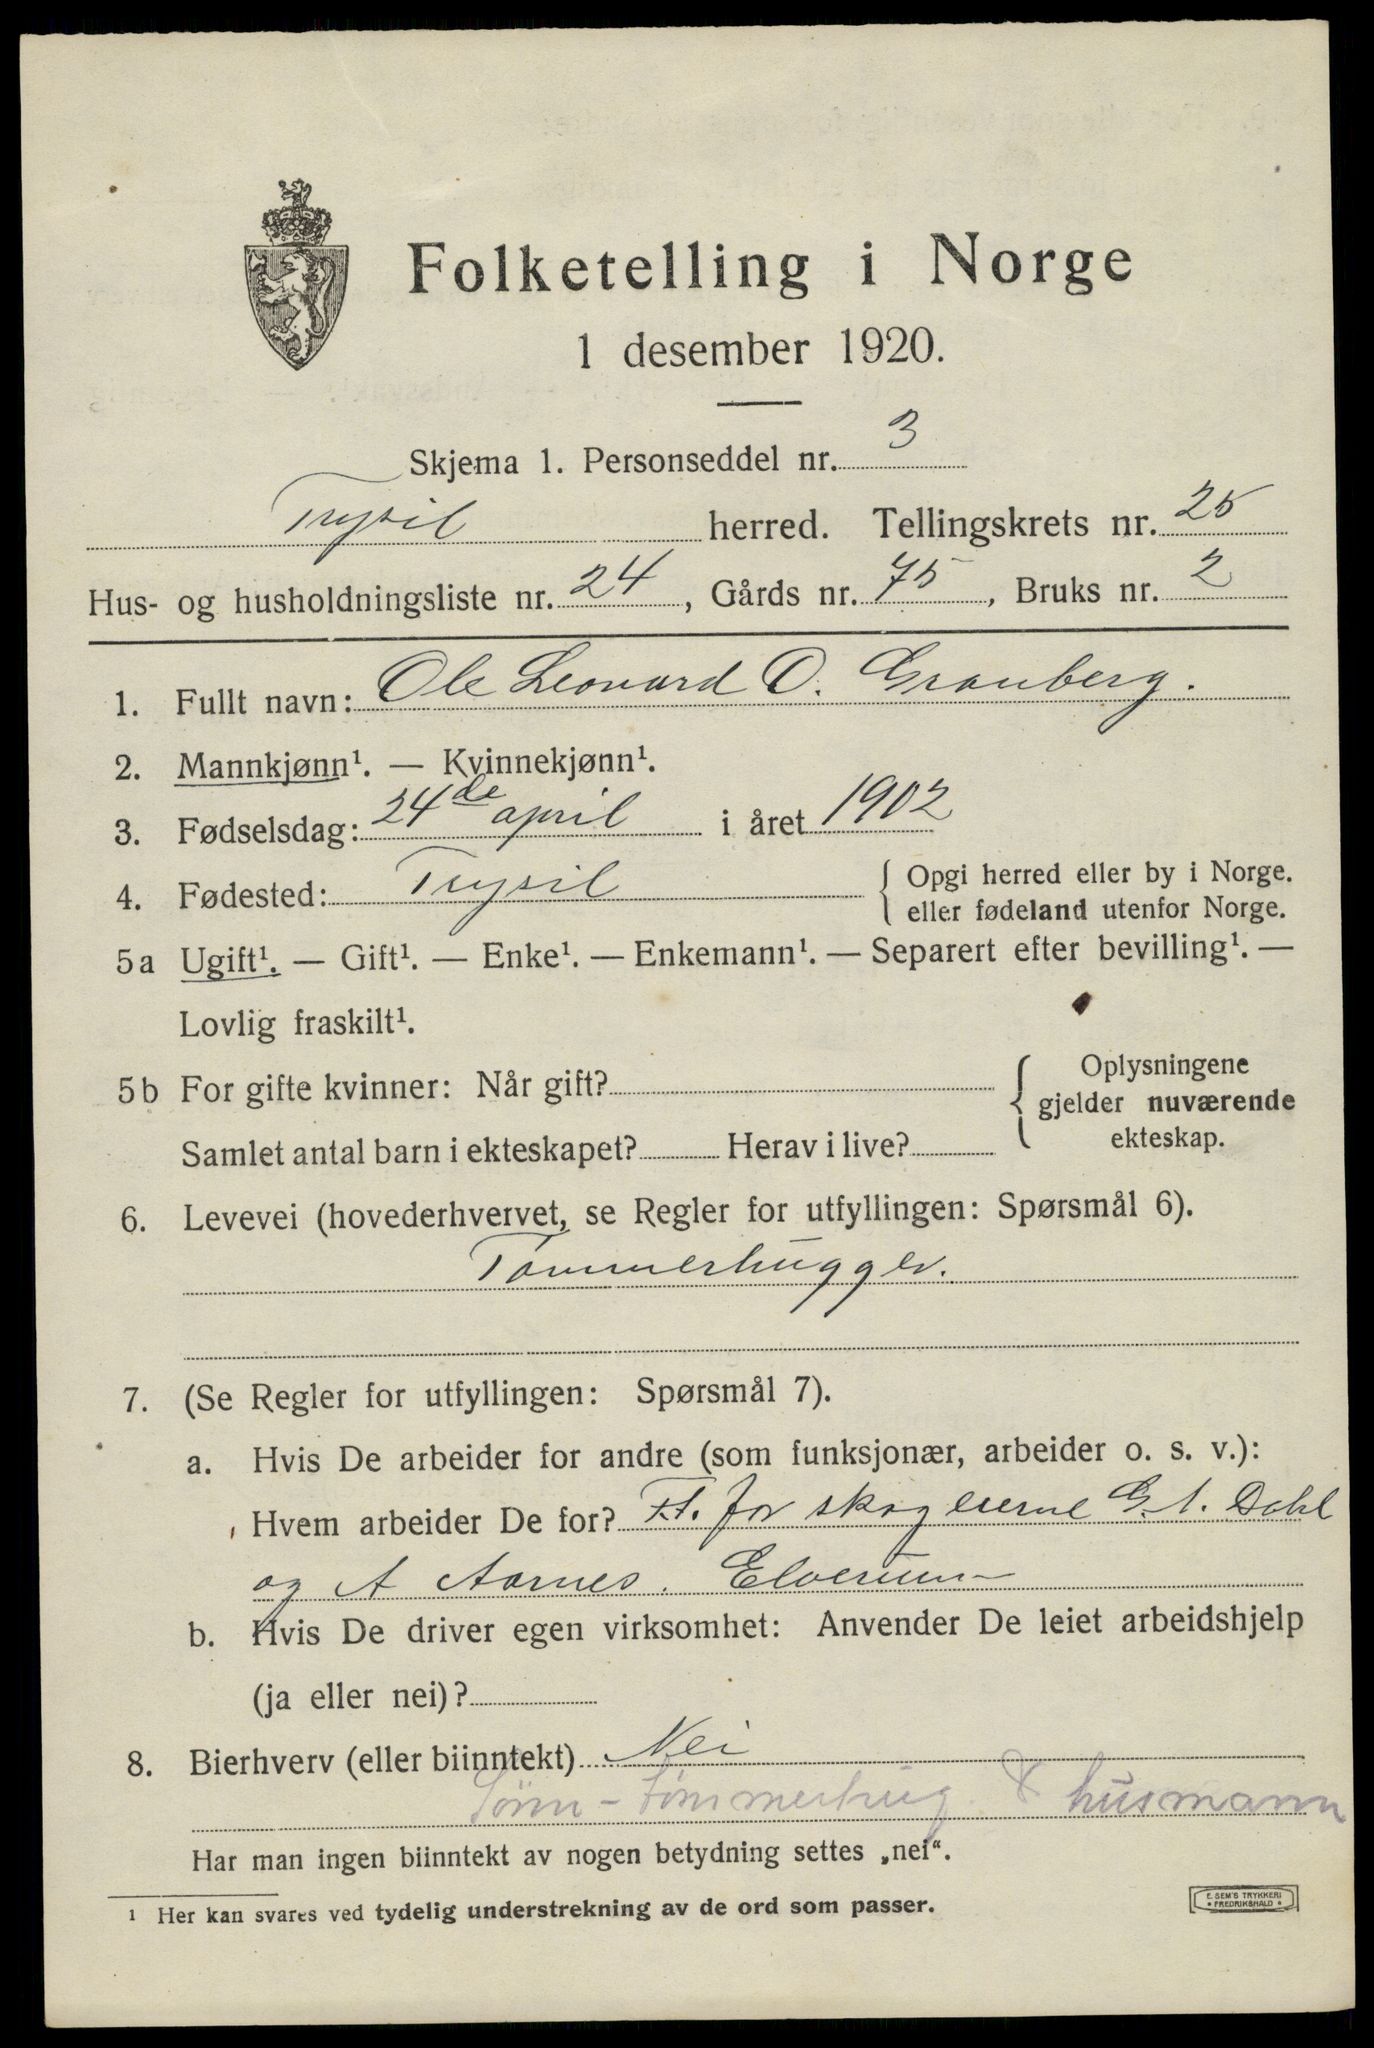 Folketelling i Norge
1 desember 1920.
Skjema 1. Personseddel nr. 3
Trysil herred. Tellingskrets nr. 25
Hus- og husholdningsliste nr. 24, Gårds nr. 75, Bruks nr. 2
1. Fullt navn: Ole Leonard O. Granberg.
2. Mannkjønn¹. — Kvinnekjønn¹.
3. Fødselsdag: 24de april i året 1902
4. Fødested: Trysil { Opgi herred eller by i Norge.
eller fødeland utenfor Norge.
5a Ugift¹. — Gift¹. — Enke¹. — Enkemann¹. — Separert efter bevilling¹. —
Lovlig fraskilt¹.
5b For gifte kvinner: Når gift? { Oplysningene
gjelder nuværende
ekteskap.
Samlet antal barn i ekteskapet? Herav i live?
6. Levevei (hovederhvervet, se Regler for utfyllingen: Spørsmål 6).
Tømmerhugger.
7. (Se Regler for utfyllingen: Spørsmål 7).
a. Hvis De arbeider for andre (som funksjonær, arbeider o. s. v.):
Hvem arbeider De for? F.t. for skogeierne G. A. Dahl
og A Aarnes. Elverum
b. Hvis De driver egen virksomhet: Anvender De leiet arbeidshjelp
(ja eller nei)?
8. Bierhverv (eller biinntekt) Nei
Sønn - tømmerhug. & husmann
Har man ingen biinntekt av nogen betydning settes „nei“.
¹ Her kan svares ved tydelig understrekning av de ord som passer.
E. SEM'S TRYKKERI
* FREDRIKSHALD *